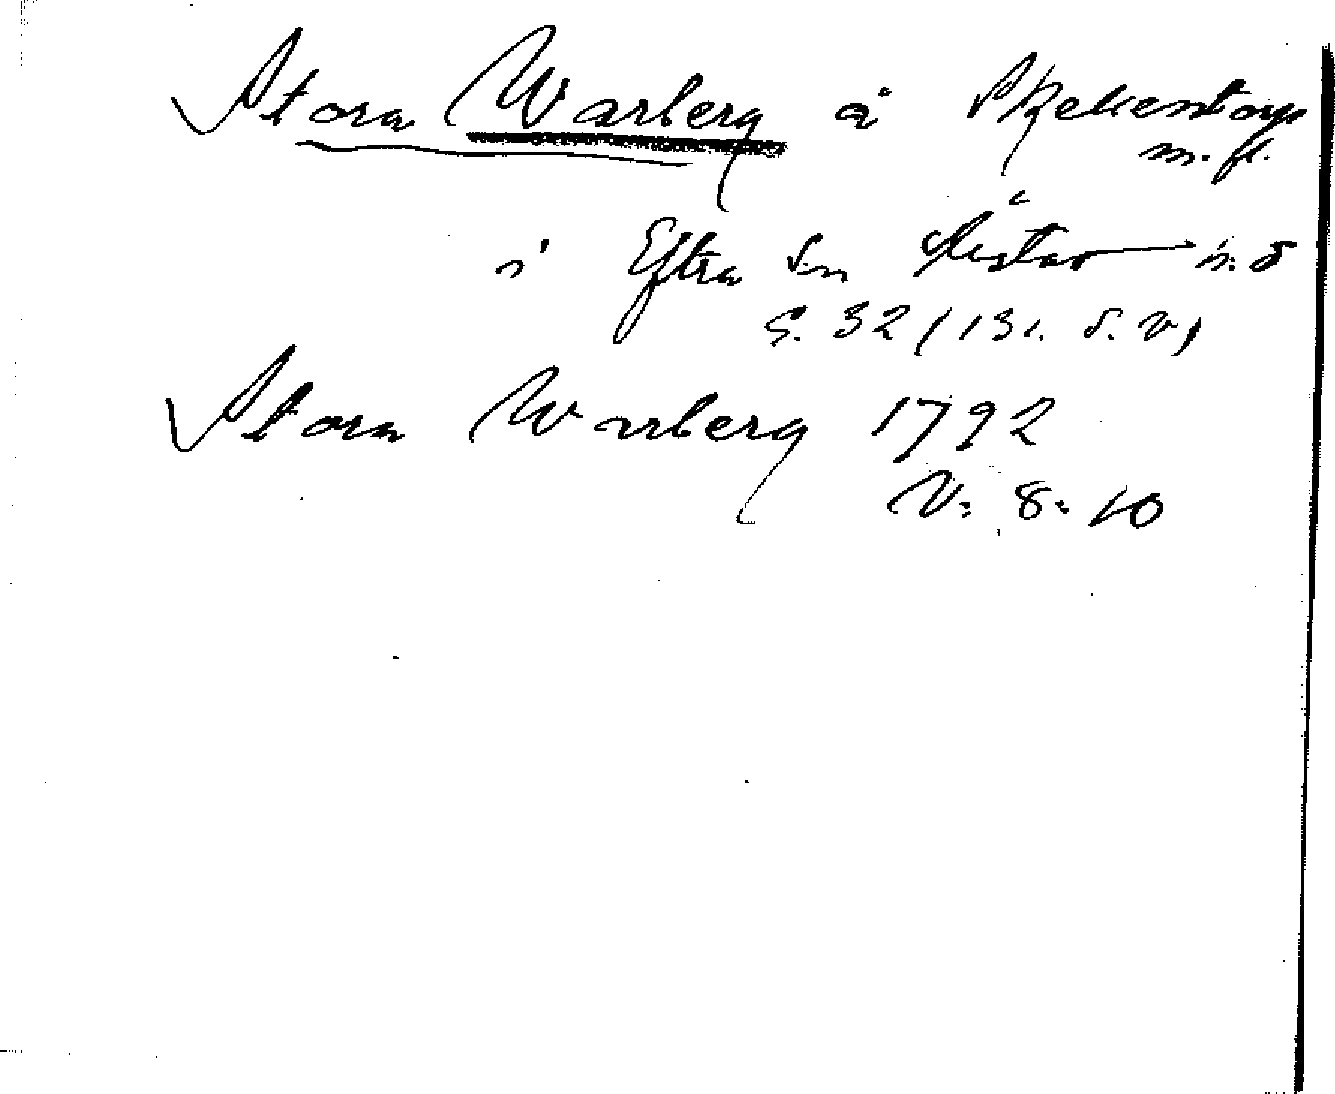 Stora Warberg å
m. fl.
i Eftra Sn
S. 32 (131. S. V)
Stora Warberg 1792
V: 8: 10